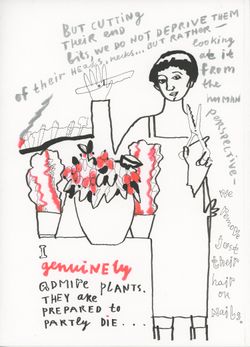 BUT CUTTING
THEIR END
BITS, WE DO NOT DEPRIVE THEM
OF THEIR HEADS, NECKS... BUT RATHER
LOOKING
AT IT
FROM
THE
HUMAN
PERSPECTIVE -
WE
REMOVE
JUST
THEIR
HAIR
OR
NAILS.
I
genuinely
ADMIRE PLANTS.
THEY ARE
PREPARED TO
PARTLY DIE . . .